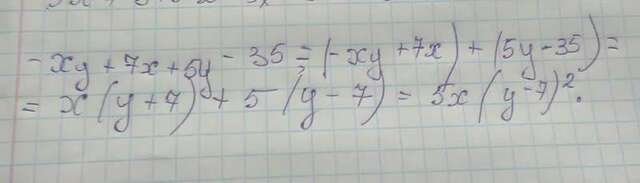 - xy + 7x + 5y - 35 = (- xy + 7x) + (5y - 35) =
= x (y + 7) + 5 (y - 7) = 5x (y - 7)².